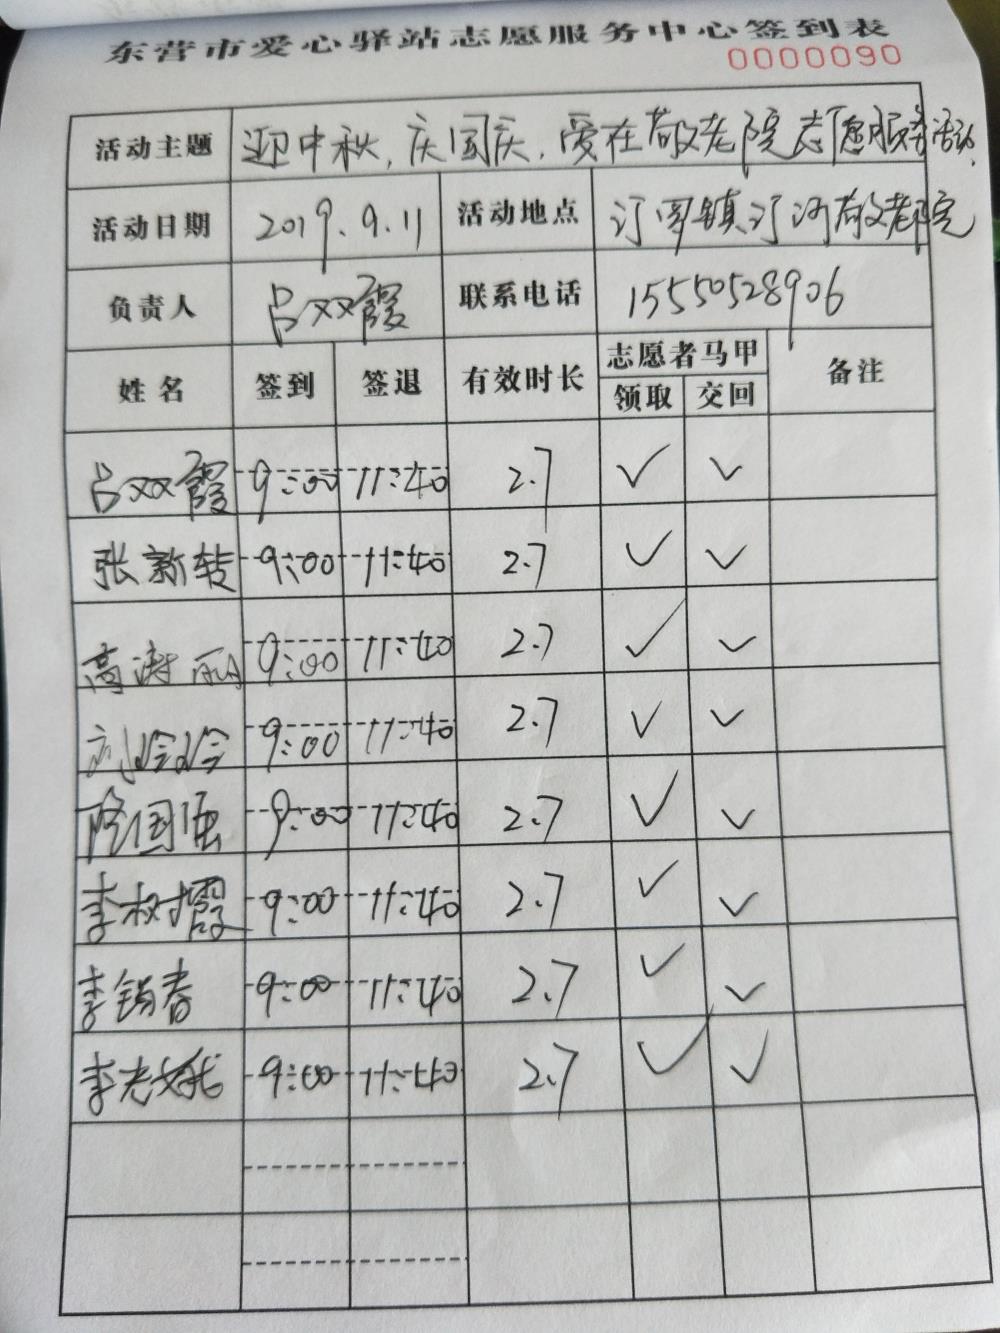 东营市爱心驿站志愿服务中心签到表
0000090
活动主题 迎中秋,庆国庆,爱在敬老院志愿服务活动.
活动日期 2019.9.11 活动地点 汀罗镇汀河敬老院
负责人 吕双霞 联系电话 15550528906
姓名 签到 签退 有效时长 志愿者马甲 备注
领取 交回
吕双霞 9:00 11:40 2.7 ✓ ✓
张新转 9:00 11:40 2.7 ✓ ✓
高 9:00 11:40 2.7 ✓ ✓
刘玲玲 9:00 11:40 2.7 ✓ ✓
隆国强 9:00 11:40 2.7 ✓ ✓
李树霞 9:00 11:40 2.7 ✓ ✓
李锦春 9:00 11:40 2.7 ✓ ✓
李志娥 9:00 11:40 2.7 ✓ ✓